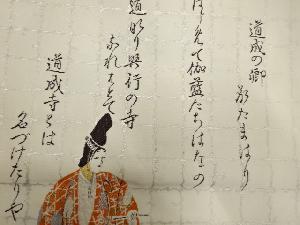 道成の卿
たまはり
はしめて伽藍たちはなの
道なり興行の寺
なれはとて
道成寺とは
名づけたりや